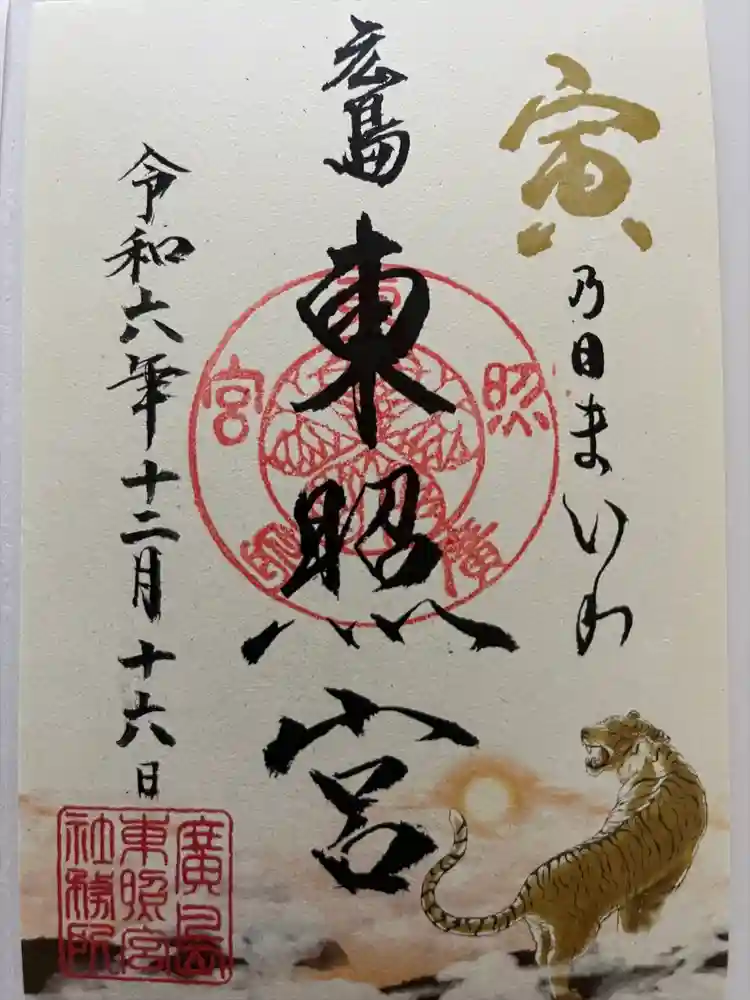 寅
乃日まいり
広島
東照宮
令和六年十二月十六日
東照宮
廣島
廣島
東照宮
社務所